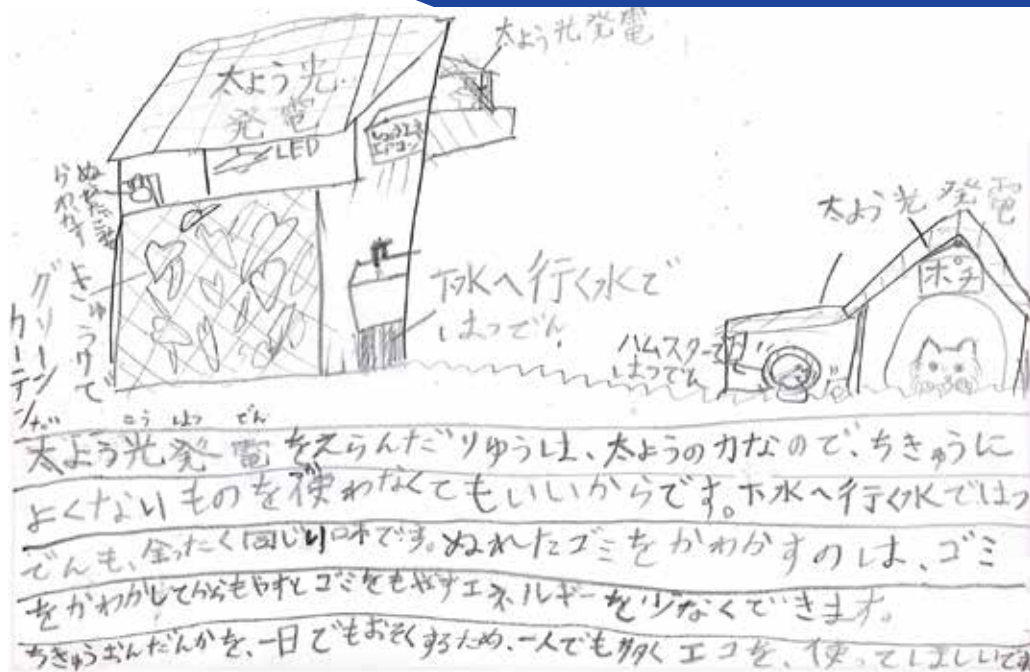 太よう光発電
太よう光
発電
LED
しょうエネ
エアコン
きゅうりで
グリーン
カーテン
下水へ行く水で
はつでん
太よう光発電
ポチ
ハムスターで
はつでん
こう はつ でん
太よう光発電をえらんだりゆうは、太ようの力なので、ちきゅうに
よくないものを使わなくてもいいからです。下水へ行く水ではつ
でんも、全ったく同じりロホです。ぬれたゴミをかわかすのは、ゴミ
をかわかしてからもやすとゴミをもやすエネルギーを少なくできます。
ちきゅうおんだんかを、一日でもおそくするため、一人でも多くエコを、使ってほしいです